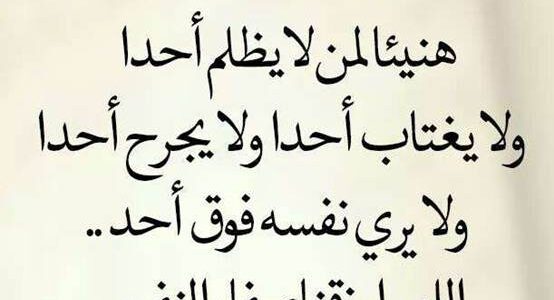 هنيئا لمن لا يظلم أحدا
ولا يغتاب أحدا ولا يجرح أحدا
ولا يري نفسه فوق أحد ..